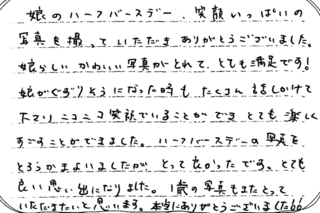 娘のハーフバースデー、笑顔いっぱいの
写真を撮っていただき ありがとうございました。
娘らしい かわいい写真がとれて、とても満足です!
娘がぐずりそうになった時も、たくさん 話しかけて
下さり ニコニコ笑顔でいることができ とても 楽しく
すごすことができました。ハーフバースデーの写真を
とろうかまよいましたが、とって良かったです。とても
良い思い出になりました。1歳の写真もまたとって
いただきたいと思います。本当にありがとうございました